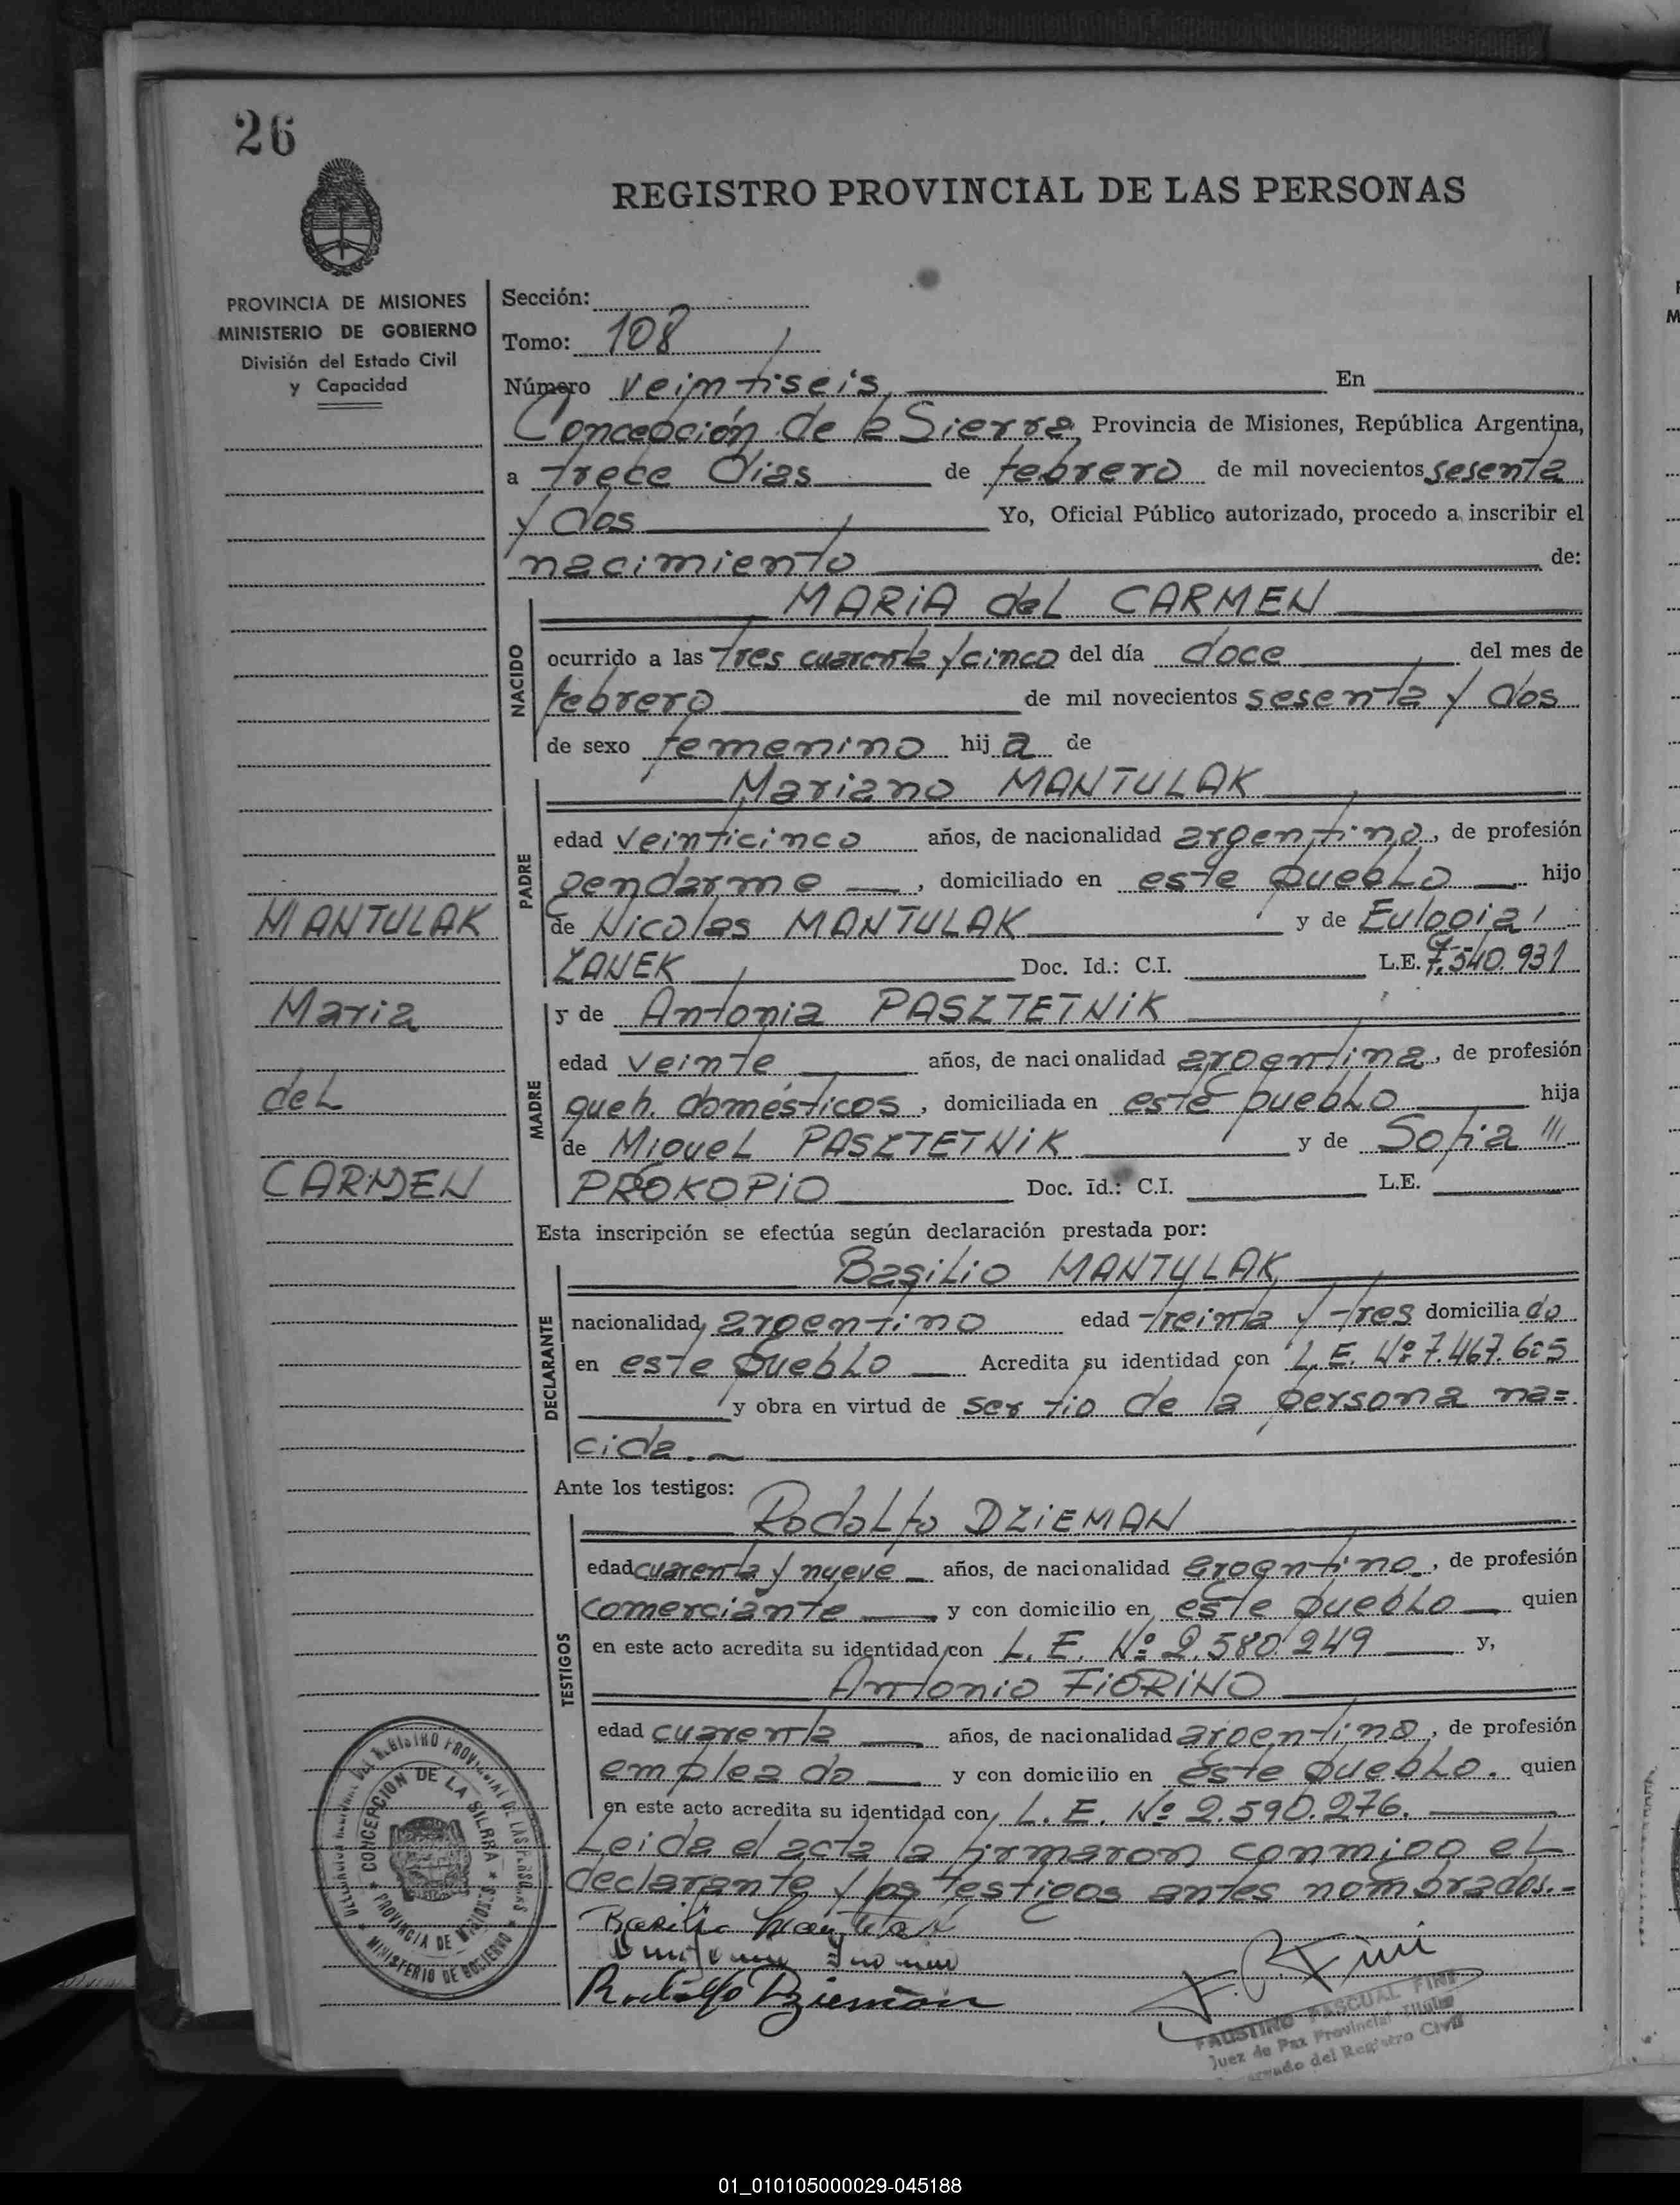 26
REGISTRO PROVINCIAL DE LAS PERSONAS
PROVINCIA DE MISIONES
MINISTERIO DE GOBIERNO
División del Estado Civil
y Capacidad
Sección:
Tomo: 108
Número veintiseis En
Concepción de la Sierra Provincia de Misiones, República Argentina,
a trece dias de febrero de mil novecientos sesenta
y dos Yo, Oficial Público autorizado, procedo a inscribir el
nacimiento de:
MARIA del CARMEN
NACIDO
ocurrido a las tres cuarenta y cinco del día doce del mes de
febrero de mil novecientos sesenta y dos
de sexo femenino hija de
Mariano MANTULAK
PADRE
edad veinticinco años, de nacionalidad argentino, de profesión
gendarme, domiciliado en este pueblo hijo
de Nicolas MANTULAK y de Eulogia
ZANEK Doc. Id.: C.I. L.E. 7.540.931
MANTULAK
Maria
del
CARMEN
MADRE
y de Antonia PASZTETNIK
edad veinte años, de nacionalidad argentina, de profesión
queh. domésticos, domiciliada en este pueblo hija
de Miguel PASZTETNIK y de Sofia
PROKOPIO Doc. Id.: C.I. L.E.
Esta inscripción se efectúa según declaración prestada por:
Basilio MANTULAK
DECLARANTE
nacionalidad argentino edad treinta y tres domiciliado
en este pueblo Acredita su identidad con L.E. Nº 7.467.605
y obra en virtud de ser tio de la persona na=
cida.
Ante los testigos:
Rodolfo DZIEMAN
TESTIGOS
edad cuarenta y nueve años, de nacionalidad argentino, de profesión
comerciante y con domicilio en este pueblo quien
en este acto acredita su identidad con L. E. Nº 2.580.249 y,
Antonio FIORINO
edad cuarenta años, de nacionalidad argentino, de profesión
empleado y con domicilio en este pueblo. quien
en este acto acredita su identidad con L. E. Nº 2.590.276.
Leida el acta la firmaron conmigo el
declarante y los testigos antes nombrados.-
Basilio Mantulak
Rodolfo Dzieman
F. P. Fini
FAUSTINO PASCUAL FINI
Juez de Paz Provincial Titular
del Registro Civil
DEL REGISTRO PROVINCIAL DE LAS PERSONAS
MINISTERIO DE GOBIERNO
CONCEPCION DE LA SIERRA
PROVINCIA DE MISIONES
01_010105000029-045188